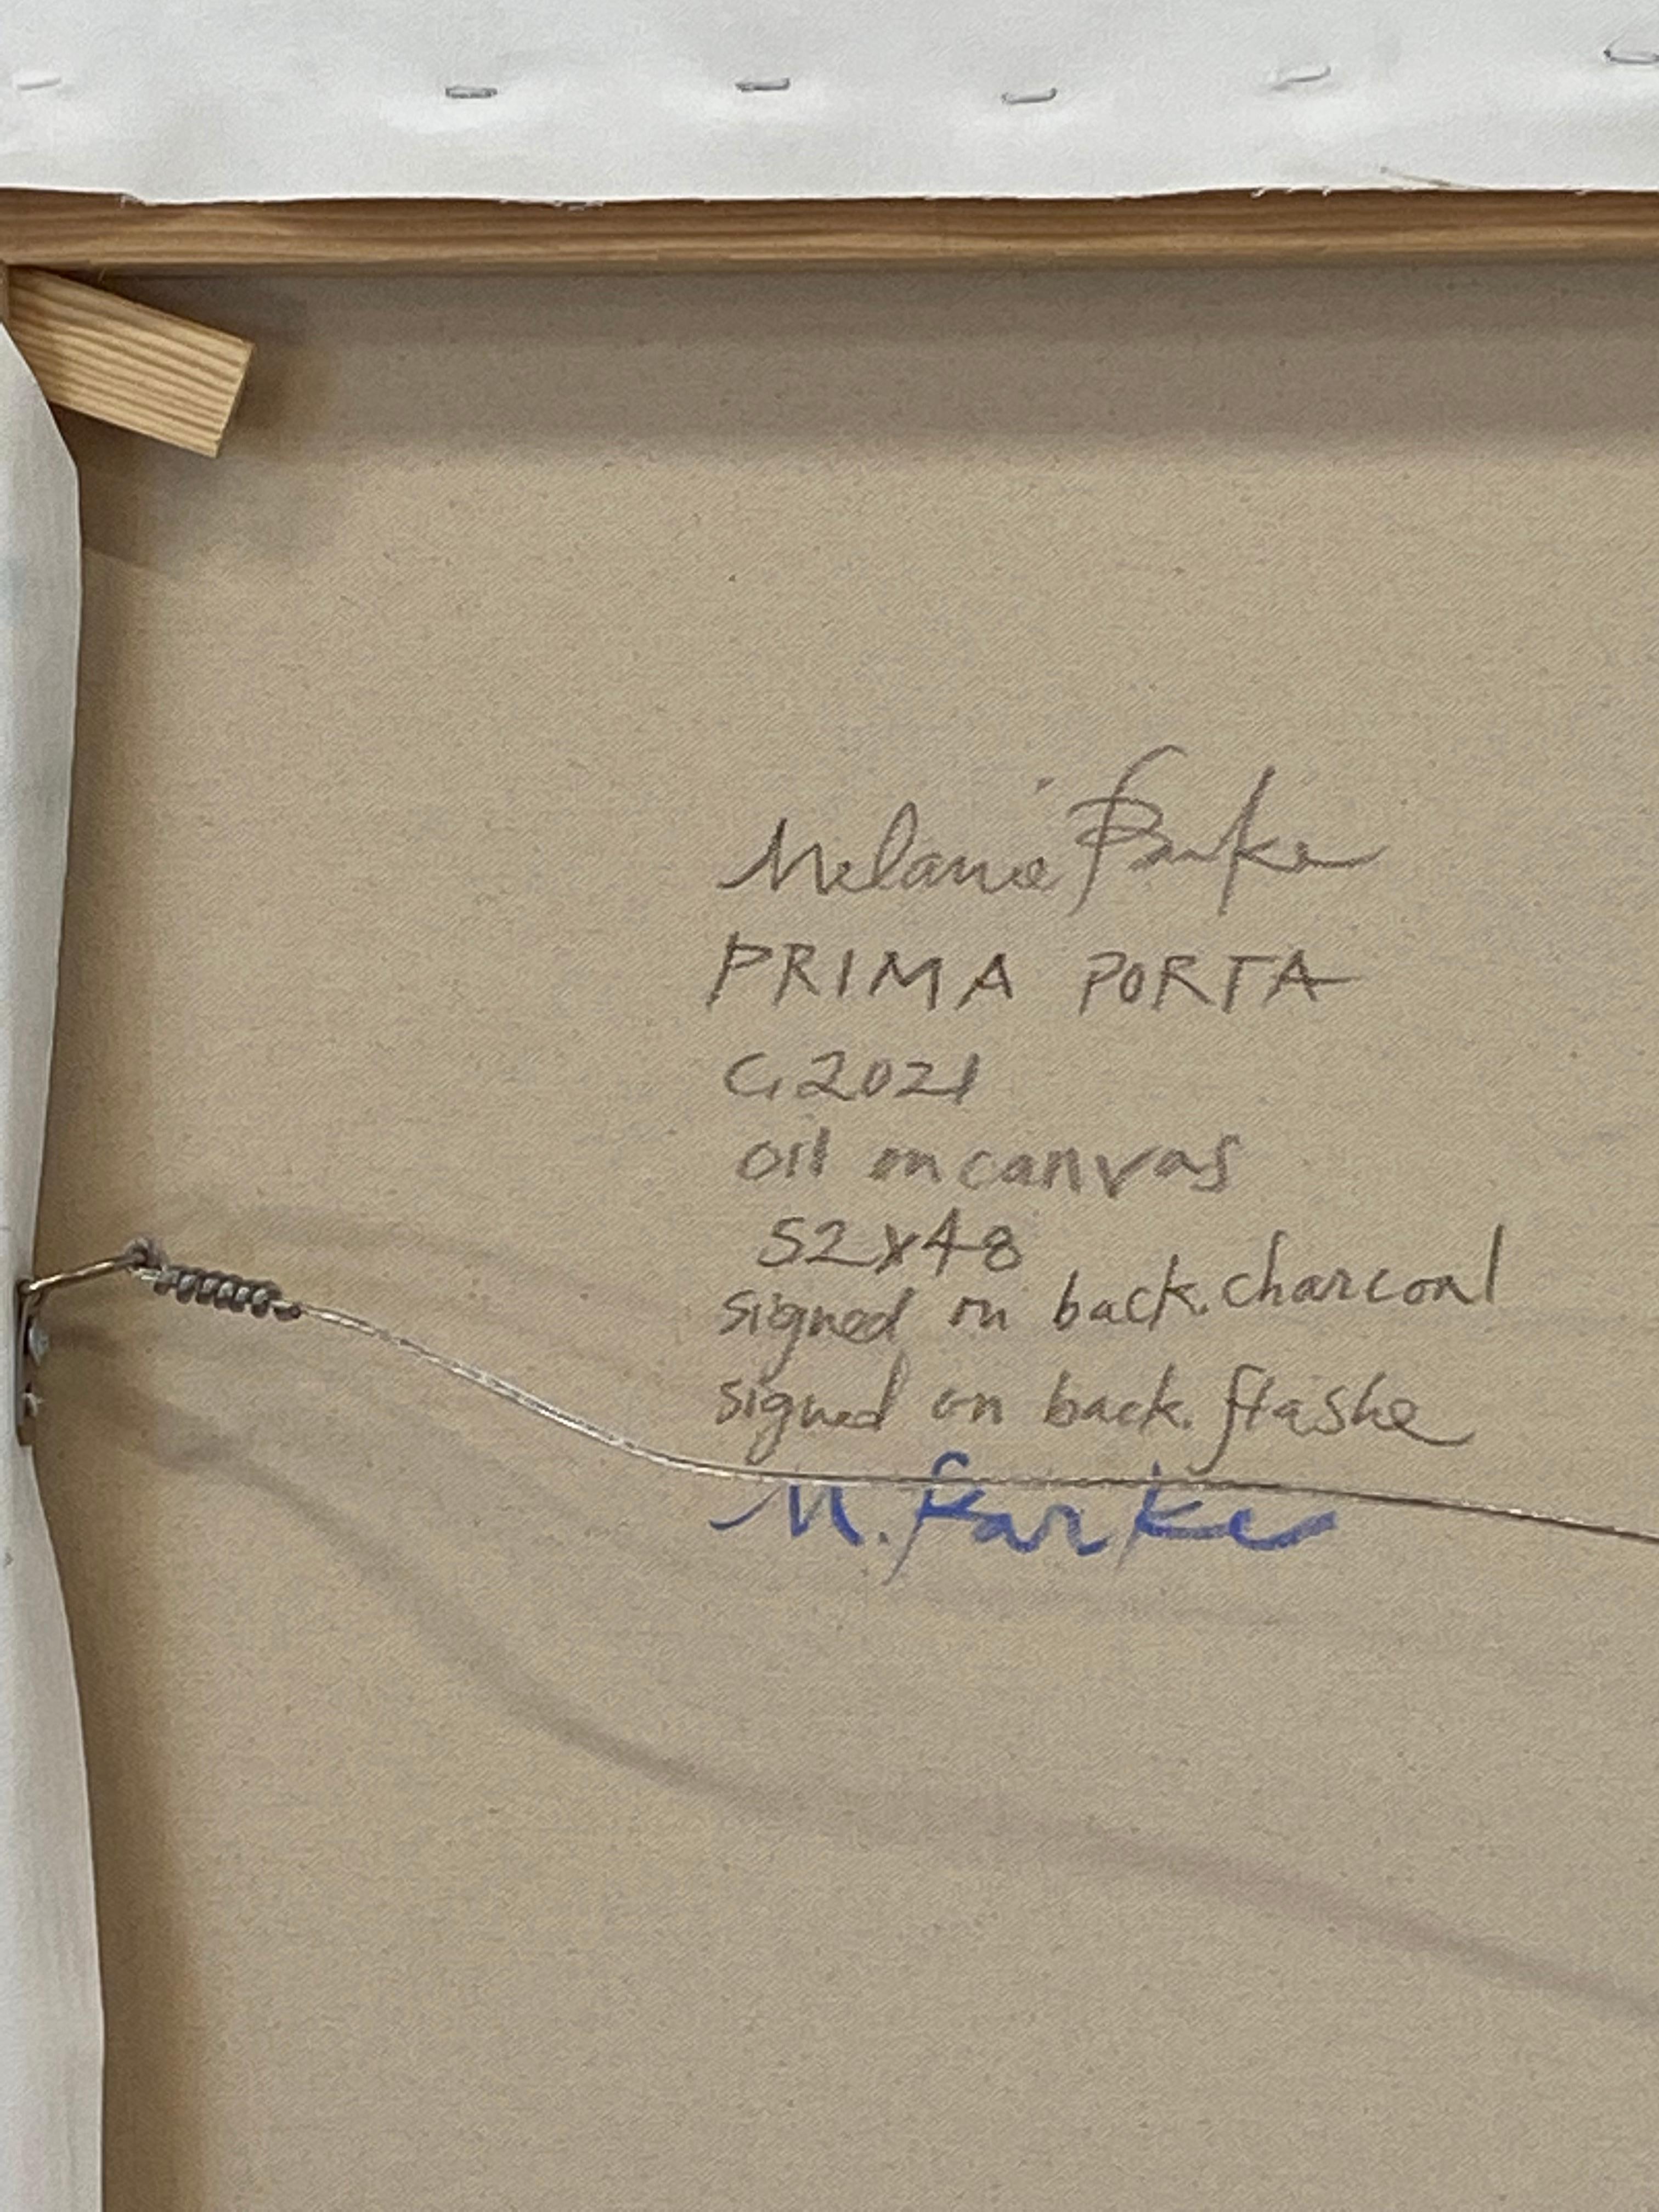 Melanie Parke
PRIMA PORTA
C. 2021
oil on canvas
52x48
signed on back. charcoal
signed on back. flashe
M. Parke